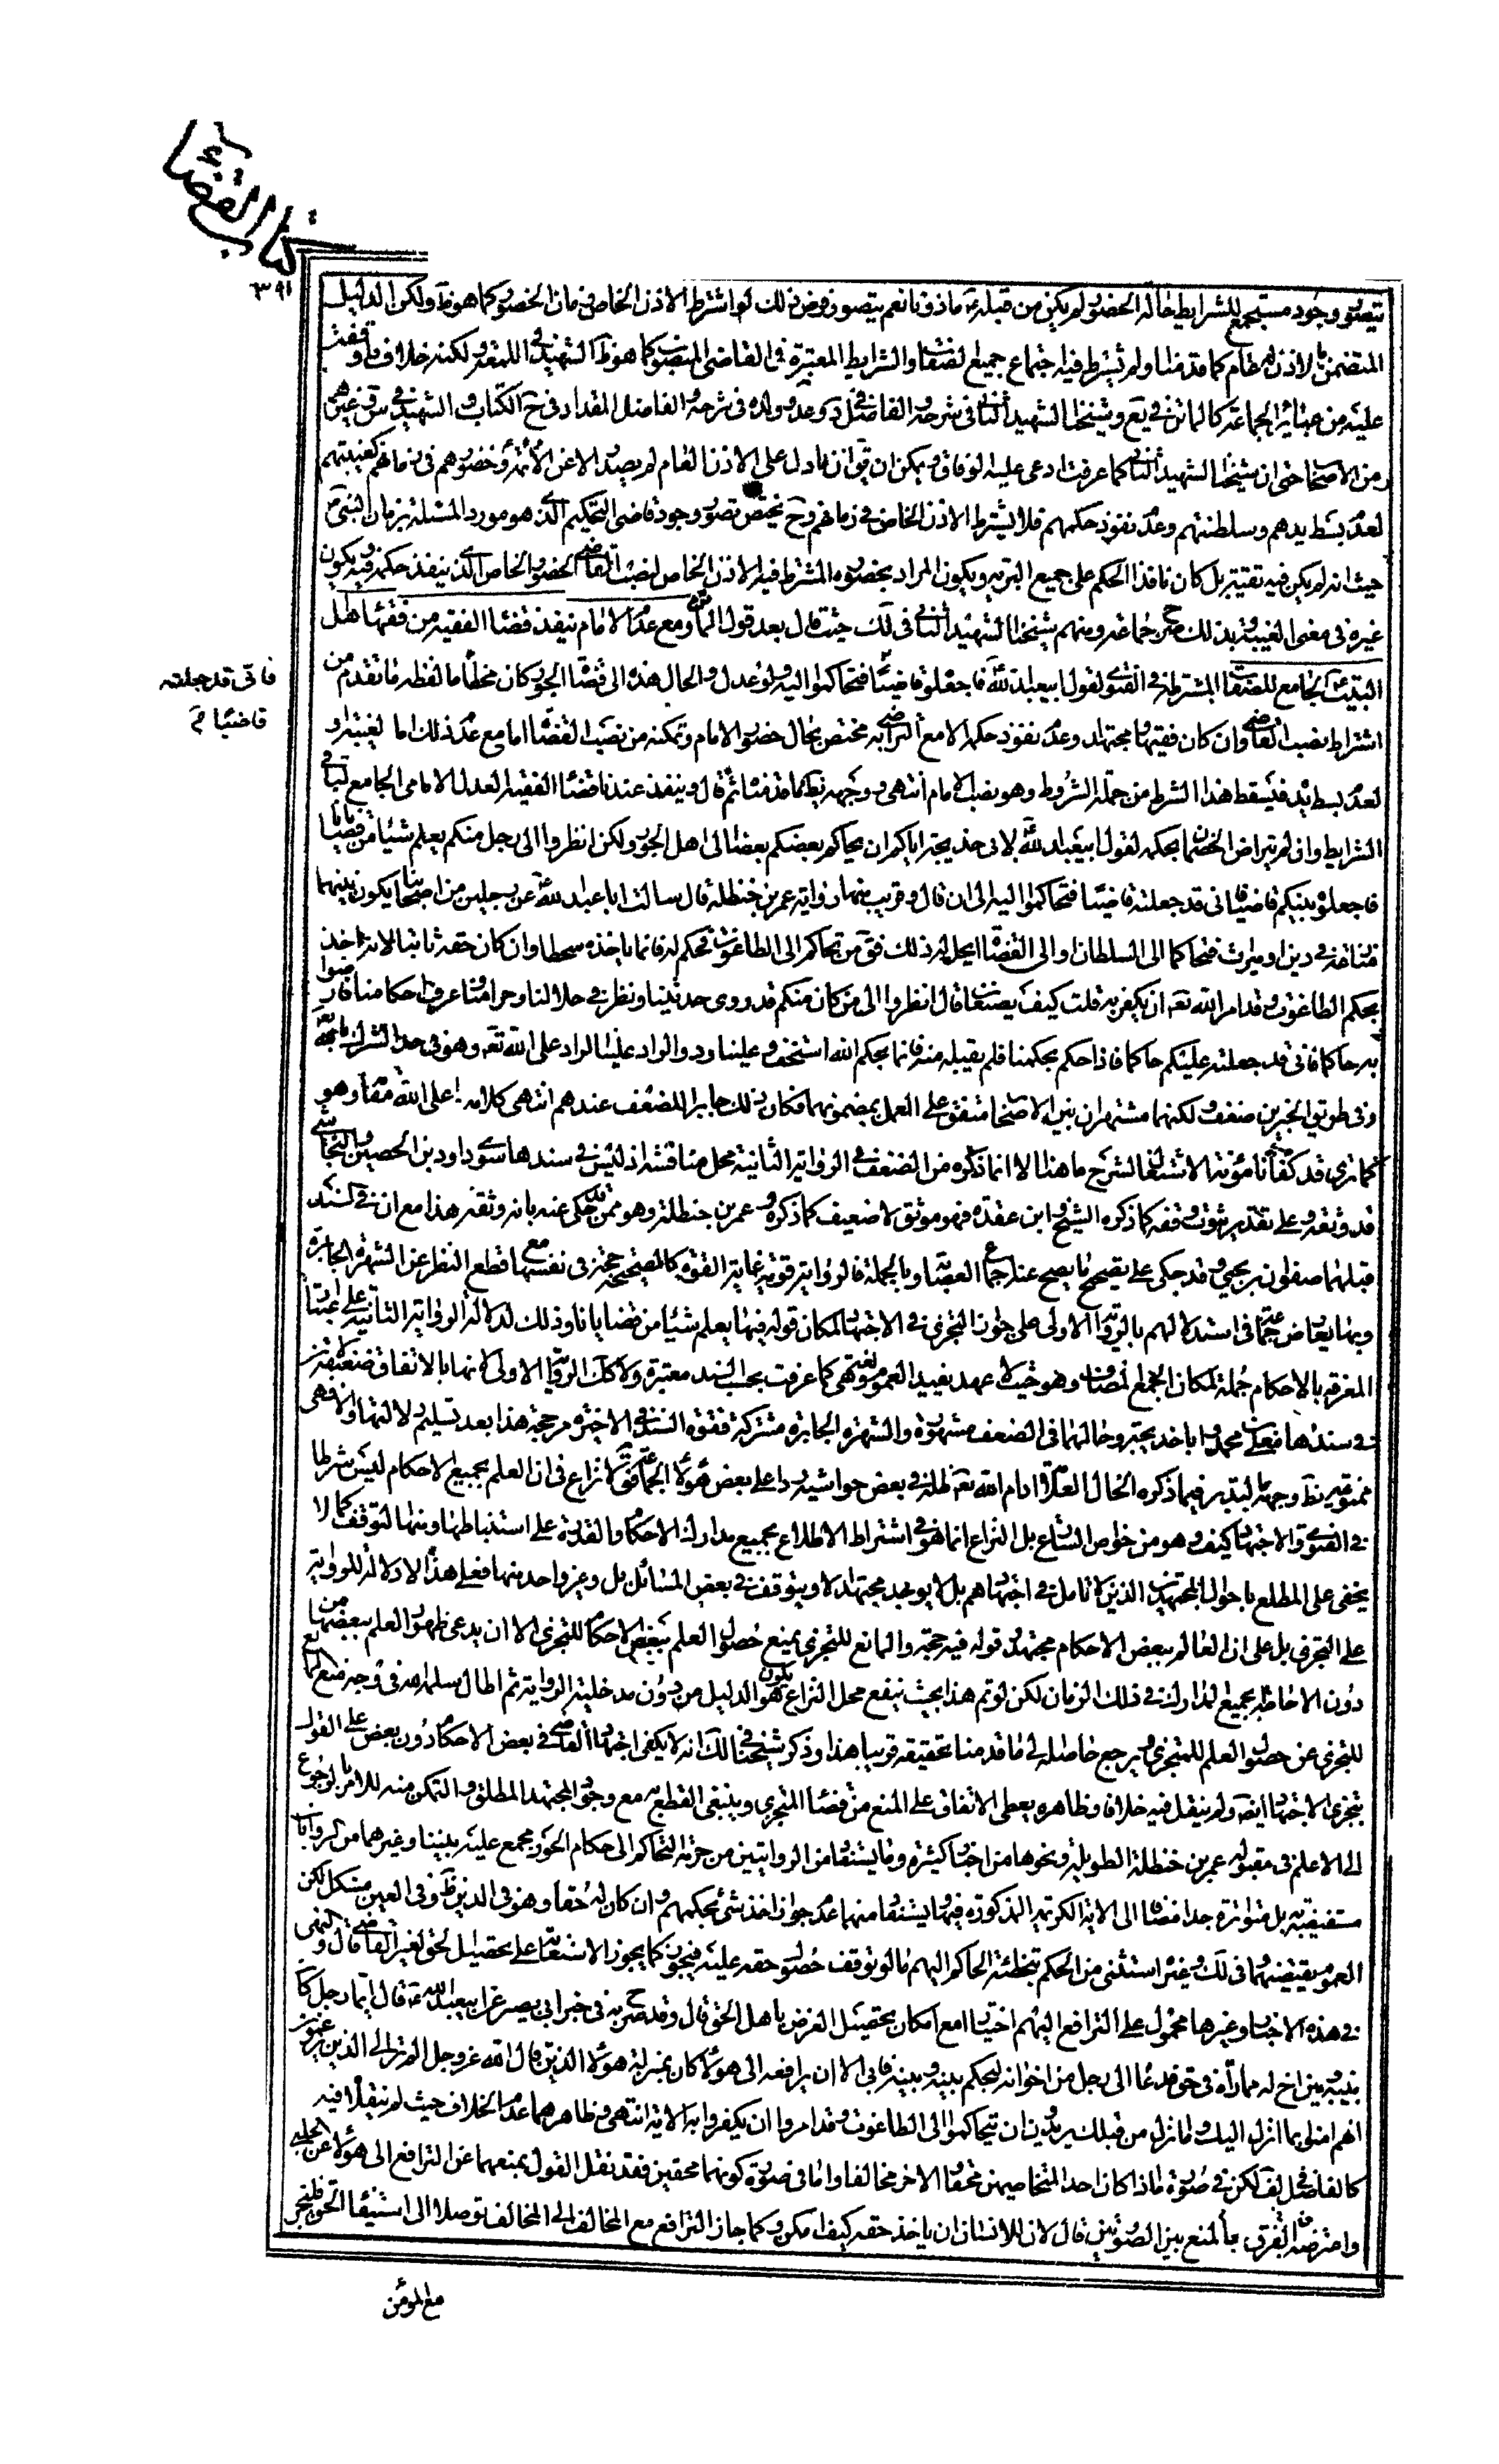 كتاب القضاء
٣٩١
يتصور وجود مستجمع للشرايط حالة الحضور لم يكن من قبله ع ماذونا نعم يتصور فرض ذلك لو اشترط الاذن الخاص في زمان الحضور كما هو ظ ولكن الدليل
المتضمن للاذن عام كما قدمنا ولم يشترط فيه اجتماع جميع الصفات والشرايط المعتبرة في القاضي المنصوب كما هو ظ الشهيد في اللمعة لكنه خلاف ما وقفت
عليه من عبائر الجماعة كالماتن في يع وشيخنا الشهيد الثاني في شرحه والفاضل في د وعد وولده في شرحه والفاضل المقداد في ح الكتاب والشهيد في س وغيرهم
من الاصحاب حتى ان شيخنا الشهيد الثاني كما عرفت ادعى عليه الوفاق ويمكن ان يق ان ما دل على الاذن العام لم يصدر الا عن الائمة وحضورهم في زمانهم كغيبتهم
لعدم بسط يدهم وسلطنتهم وعدم نفوذ حكمهم فلا يشترط الاذن الخاص في زمانهم وح يختص تصور وجود قاضي التحكيم الذي هو مورد المسئلة بزمان النبي ص
حيث انه لم يكن فيه تقية بل كان نافذ الحكم على جميع البرية ويكون المراد بحضوره المشترط فيه الاذن الخاص لنصب القاضي الحضور الخاص الذي ينفذ حكمه فيه ويكون
غيره في معنى الغيبة وبذلك صرح جماعة ومنهم شيخنا الشهيد الثاني في لك حيث قال بعد قول الماتن ومع عدم الامام ينفذ قضاء الفقيه من فقهاء اهل
البيت ع الجامع للصفات المشترطة في الفتوى لقول ابيعبد الله ع فاجعلوه قاضيا فتحاكموا اليه ولو عدل والحال هذه الى قضاة الجور كان مخطأ ما لفظه ما تقدم من
اشتراط نصب القاضي وان كان فقيها مجتهدا وعدم نفوذ حكمه الا مع التراضي به مختص بحال حضور الامام وتمكنه من نصب القضاة اما مع عدم ذلك اما لغيبته او
لعدم بسط يده فيسقط هذا الشرط من جملة الشروط وهو نصب الامام انتهى ووجهه يظ مما قدمنا ثم قال وينفذ عندنا قضاء الفقيه العدل الامامي الجامع لباقي
الشرايط وان لم يتراض الخصمان بحكمه لقول ابيعبد الله ع لابي خديجة اياكم ان يحاكم بعضكم بعضا الى اهل الجور ولكن انظروا الى رجل منكم يعلم شيئا من قضايانا
فاجعلوه بينكم قاضيا فاني قد جعلته قاضيا فتحاكموا اليه الى ان قال وقريب منها رواية عمر بن حنظلة قال سالت ابا عبد الله ع عن رجلين من اصحابنا يكون بينهما
منازعة في دين او ميراث فتحاكما الى السلطان او الى القضاة ايحل له ذلك فق من تحاكم الى الطاغوت فحكم له فانما ياخذه سحتا وان كان حقه ثابتا لانه اخذ
بحكم الطاغوت وقد امر الله تعه ان يكفر به قلت كيف يصنعان قال انظروا الى من كان منكم قد روى حديثنا ونظر في حلالنا وحرامنا وعرف احكامنا فارضوا
به حاكما فاني قد جعلته عليكم حاكما فاذا حكم بحكمنا فلم يقبله منه فانما بحكم الله استخف وعلينا رد والراد علينا الراد على الله تعه وهو في حد الشرك بالله تعه
وفي طريق الخبرين ضعف ولكنهما مشتهران بين الاصحاب متفق على العمل بمضمونهما فكان ذلك جابرا للضعف عندهم انتهى كلامه اعلى الله مقامه وهو
كما ترى قد كفانا مؤنة الاشتغال بشرح ما هنا الا انما ذكره من الضعف في الرواية الثانية محل مناقشة اذ ليس في سندها سوى داود بن الحصين والنجاشي
قد وثقه وعلى تقدير ثبوت وقفه كما ذكره الشيخ وابن عقدة فهو موثق لا ضعيف كما ذكره وعمر بن حنظلة وهو ممن حكى عنه بانه وثقه هذا مع ان في السند
قبلهما صفوان بن يحيى وقد حكى على تصحيح ما يصح عنه اجماع العصابة وبالجملة فالرواية قوية غاية القوة كالصحيح حجة في نفسها مع قطع النظر عن الشهرة الجابرة
وبها يعارض جماعة في استدلالهم بالرواية الاولى على جواز التجزي في الاجتهاد لمكان قوله فيها يعلم شيئا من قضايانا وذلك لدلالة الرواية الثانية على اعتبار
المعرفة بالاحكام جملة لمكان الجمع المضاف وهو حيث لا عهد يفيد العموم لغة وهي كما عرفت بحسب السند معتبرة ولا كك الرواية الاولى لانها بالاتفاق ضعيفة
في سندها معلى بن محمد وابا خديجة وحالهما في الضعف مشهورة والشهرة الجابرة مشتركة فقوة السند في الاخيرة مرجحة هذا بعد تسليم دلالتها والا فهي
ممنوعة يظ وجهه بالتدبر فيما ذكره الخال العلامة ادام الله تعه ظله في بعض حواشيه ردا على بعض هؤلاء الجماعة فق لا نزاع في ان العلم بجميع الاحكام ليس شرطا
في الفتوى والاجتهاد كيف وهو من خواص الشارع بل النزاع انما هو في اشتراط الاطلاع بجميع مدارك الاحكام والقدرة على استنباطها ومنها التوقف كما لا
يخفى على المطلع باحوال المجتهدين الذين لا تامل في اجتهادهم بل لا يوجد مجتهد الا ويتوقف في بعض المسائل بل وغير واحد منها فعلى هذا لا دلالة للرواية
على التجزي بل على ان العالم ببعض الاحكام مجتهد وقوله فيه حجة والمانع للتجزي يمنع حصول العلم ببعض الاحكام للتجزي الا ان يدعى ظهور العلم ببعضها من
دون الاحاطة بجميع المدارك في ذلك الزمان لكن لو تم هذا بحيث ينفع محل النزاع يكون هو الدليل من دون مدخلية الرواية ثم اطال سلمه الله في وجه منع المانع
للتجزي عن حصول العلم للمتجزي ويرجع حاصله الى ما قدمنا تحقيقه قريبا هذا وذكر شيخنا في لك انه لا يكفي اجتهاد القاضي في بعض الاحكام دون بعض على القول
بتجزي الاجتهاد ايضه ولم ينقل فيه خلافا وظاهره يعطى الاتفاق على المنع من قضاء المتجزي وينبغي القطع به مع وجود المجتهد المطلق والتمكن منه للامر بالرجوع
الى الاعلم في مقبولة عمر بن حنظلة الطويلة ونحوها من اخبار كثيرة وما يستفاد من الروايتين من حرمة التحاكم الى حكام الجور مجمع عليه بيننا وغيرهما من الروايات
مستفيضة به بل متواترة جدا مضافا الى الاية الكريمة المذكورة فيها ويستفاد منهما عدم جواز اخذ شئ بحكمهم وان كان له حقا وهو في الدين ظ وفي العين مشكل لكن
العموم يقتضيهما وفي لك وغيره استثنى من الحكم بتخطئة التحاكم اليهم ما لو توقف حصول حقه عليه فيجوز كما يجوز الاستعانة على تحصيل الحق بغير القاضي قال والنهي
في هذه الاخبار وغيرها محمول على الترافع اليهم اختيارا مع امكان تحصيل الغرض باهل الحق قال وقد صرح به في خبر ابي بصير عن ابيعبد الله ع قال ايما رجل كان
بينه وبين اخ له مماراة في حق فدعاه الى رجل من اخوانه ليحكم بينه وبينه فابى الا ان يرافعه الى هؤلاء كان بمنزلة هؤلاء الذين قال الله عز وجل الم تر الى الذين يزعمون
انهم امنوا بما انزل اليك وما انزل من قبلك يريدون ان يتحاكموا الى الطاغوت وقد امروا ان يكفروا به الاية انتهى وظاهرهما عدم الخلاف حيث لم ينقلا فيه
كالفاضل في لف لكن في صورة ما اذا كان احد المتخاصمين محقا والاخر مخالفا واما في صورة كونهما محقين فقد نقل القول بمنعهما عن الترافع الى هؤلاء عن الحلبي
واعترضه بالفرق بالمنع بين الصورتين قال لان للانسان ان ياخذ حقه كيف امكن وكما جاز الترافع مع المخالف الى المخالف توصلا الى استيفاء الحق فليجز
فاني قد جعلته
قاضيا م
مع المؤمن